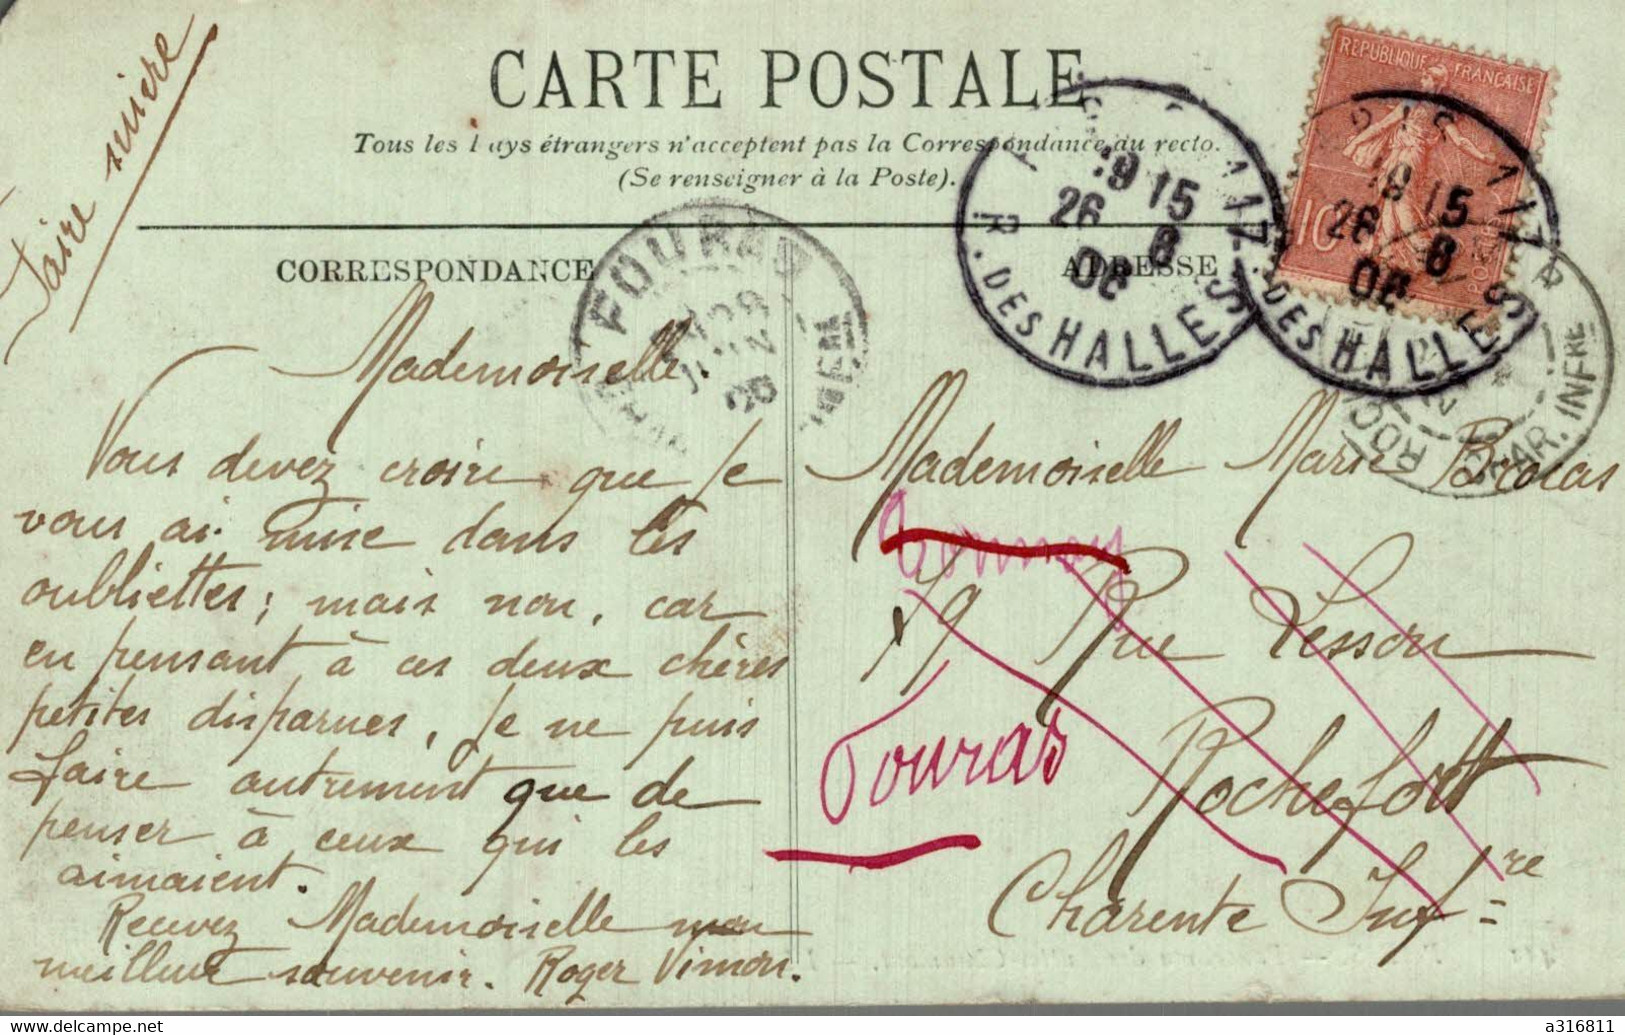 Faire suivre
CARTE POSTALE
Tous les Pays étrangers n'acceptent pas la Correspondance au recto.
(Se renseigner à la Poste).
CORRESPONDANCE
ADRESSE
REPUBLIQUE FRANÇAISE
10
19 15
26 6
06
R. DES HALLES
19 15
26 6
06
R. DES HALLES
FOURAS
JUIN
06
CHAR. INFRE
Mademoiselle.
Vous devez croire que je
vous ai mise dans les
oubliettes; mais non, car
en pensant à ces deux chères
petites disparues, je ne puis
faire autrement que de
penser à ceux qui les
aimaient.
Recevez Mademoiselle mon
meilleur souvenir. Roger Vimon.
Mademoiselle Marie
79 Rue Lesson
Rochefort
Charente Infre
Fouras
a316811